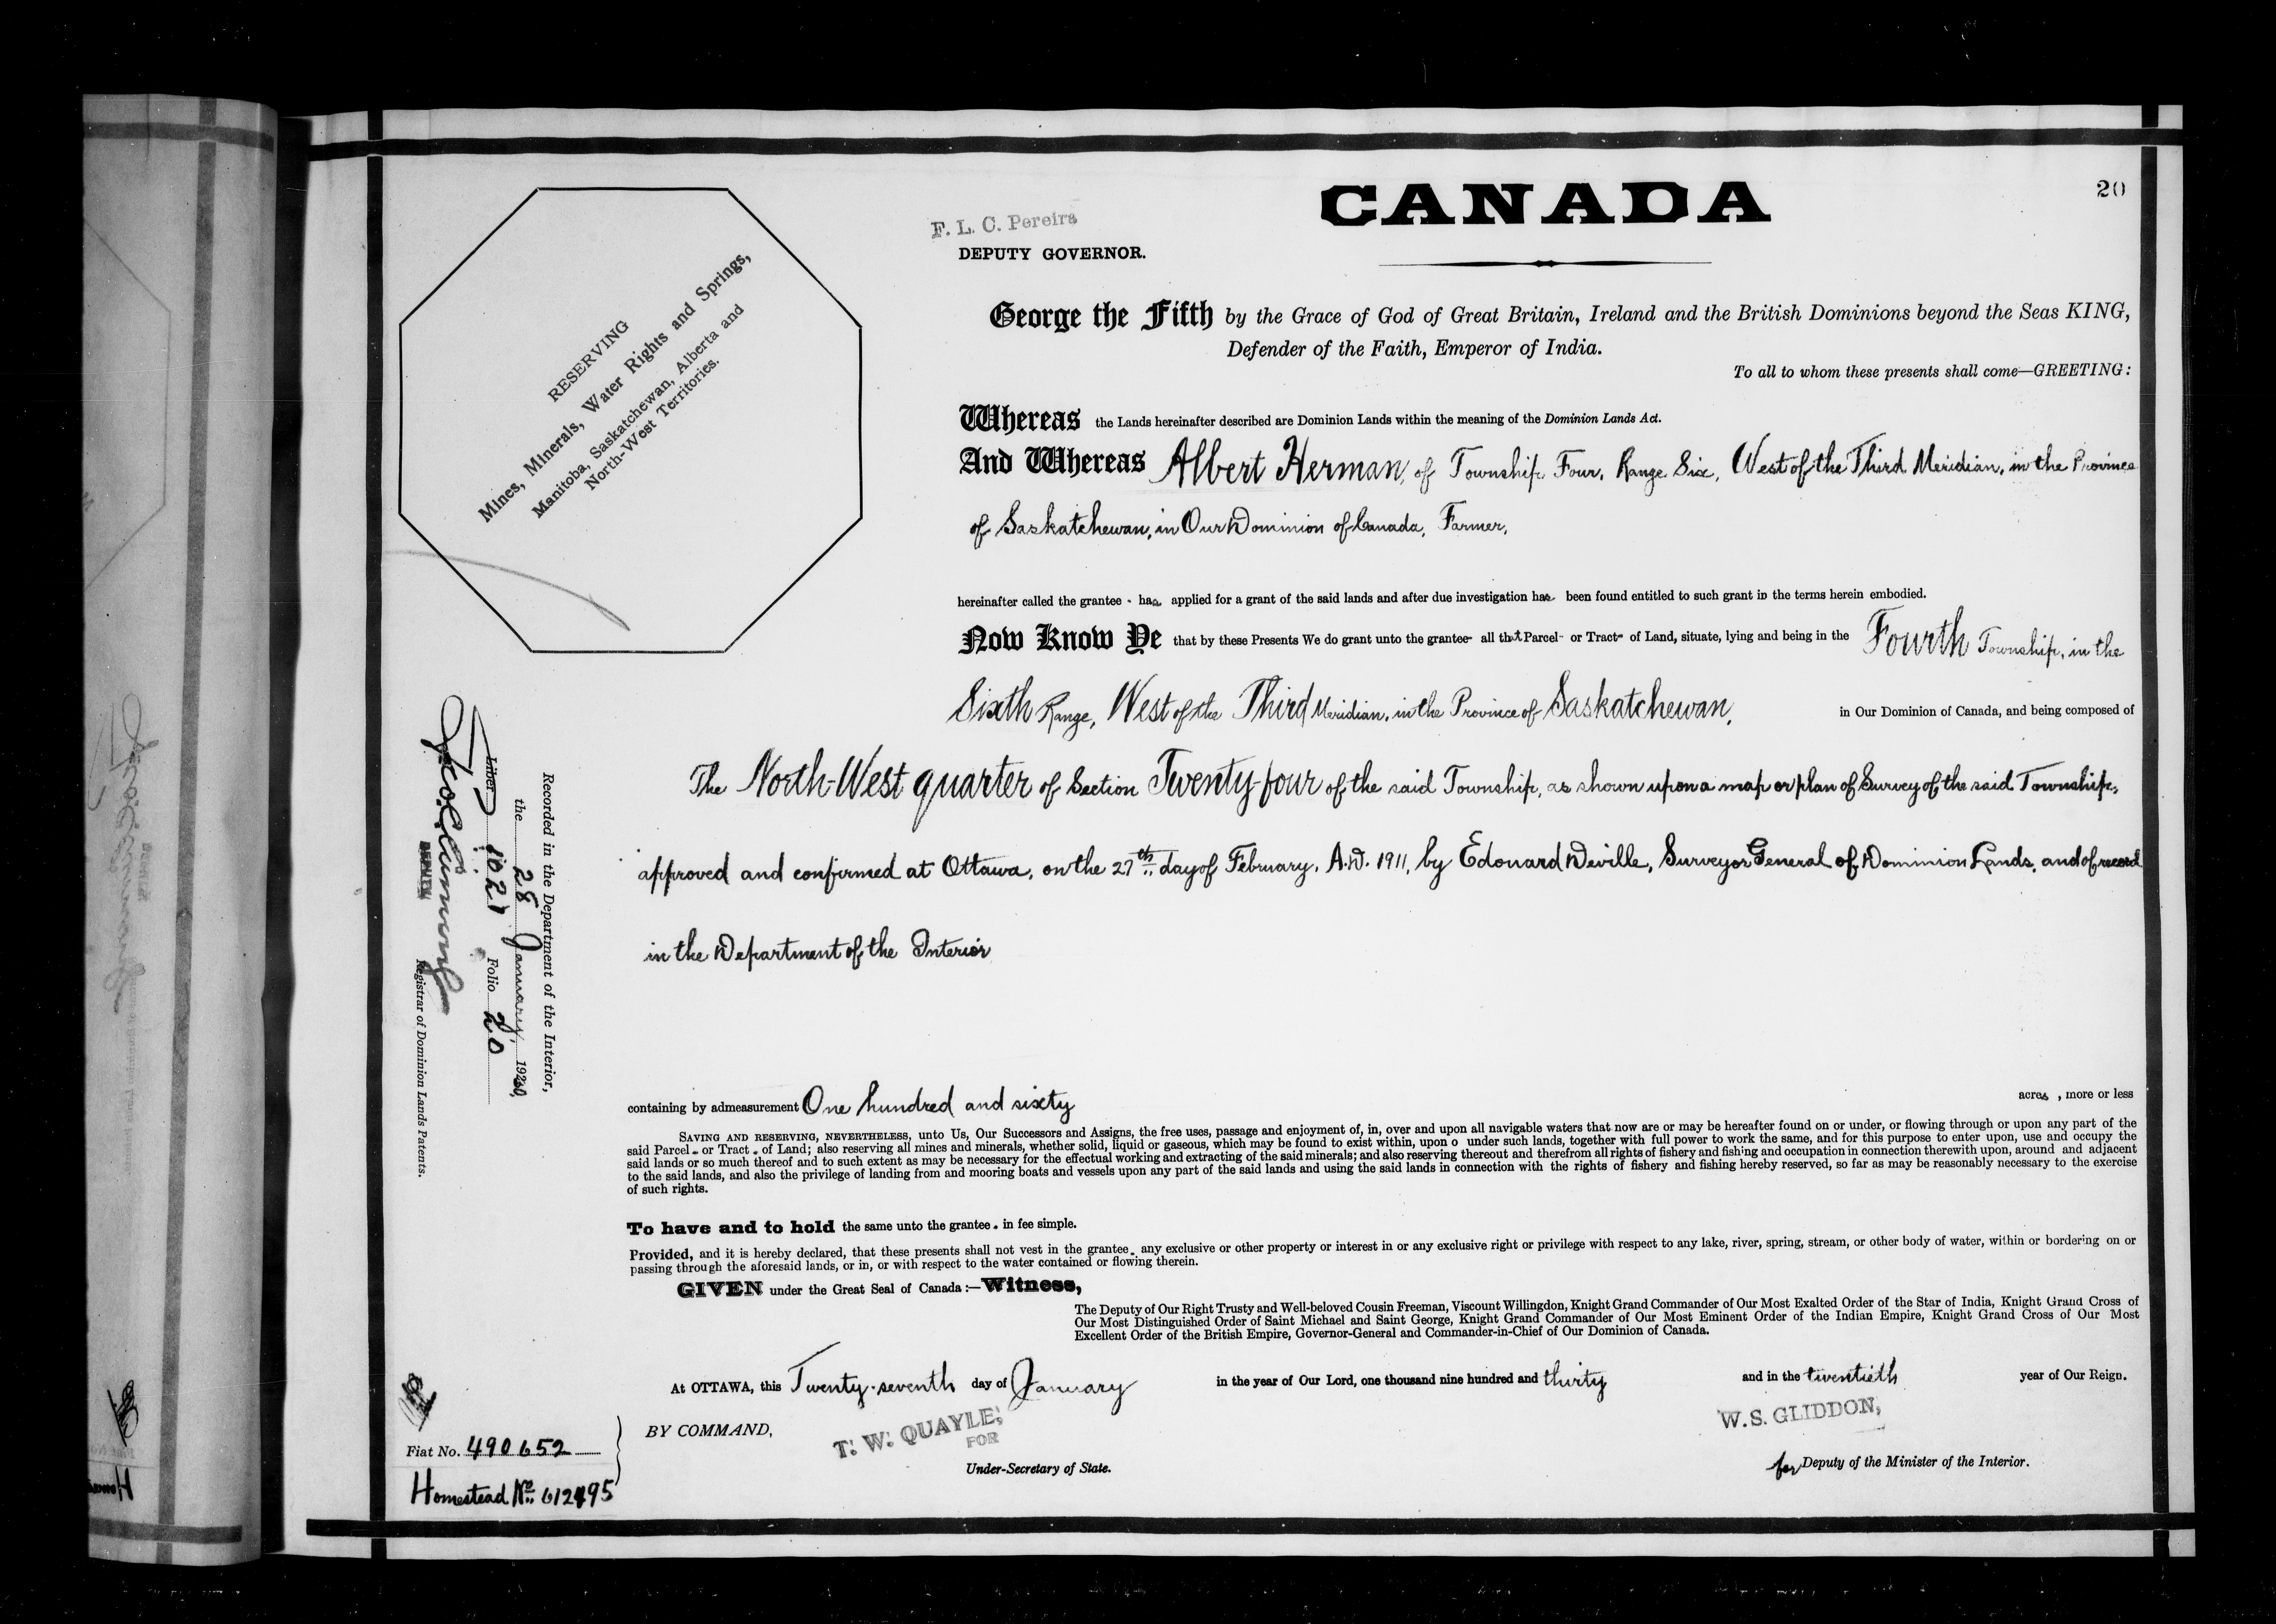 20
CANADA
F. L. C. Pereira
DEPUTY GOVERNOR.
RESERVING
Mines, Minerals, Water Rights and Springs,
Manitoba, Saskatchewan, Alberta and
North-West Territories.
George the Fifth by the Grace of God of Great Britain, Ireland and the British Dominions beyond the Seas KING,
Defender of the Faith, Emperor of India.
To all to whom these presents shall come—GREETING:
Whereas the Lands hereinafter described are Dominion Lands within the meaning of the Dominion Lands Act.
And Whereas Albert Herman, of Township Four, Range Six, West of the Third Meridian, in the Province
of Saskatchewan, in Our Dominion of Canada, Farmer,
hereinafter called the grantee - has applied for a grant of the said lands and after due investigation has been found entitled to such grant in the terms herein embodied.
Now Know Ye that by these Presents We do grant unto the grantee- all that Parcel- or Tract- of Land, situate, lying and being in the Fourth Township, in the
Sixth Range, West of the Third Meridian, in the Province of Saskatchewan, in Our Dominion of Canada, and being composed of
The North-West quarter of Section Twenty-four of the said Township, as shown upon a map or plan of Survey of the said Township,
approved and confirmed at Ottawa, on the 27th day of February, A.D. 1911, by Edouard Deville, Surveyor General of Dominion Lands, and of record
in the Department of the Interior
containing by admeasurement One hundred and sixty acres, more or less
SAVING AND RESERVING, NEVERTHELESS, unto Us, Our Successors and Assigns, the free uses, passage and enjoyment of, in, over and upon all navigable waters that now are or may be hereafter found on or under, or flowing through or upon any part of the
said Parcel - or Tract - of Land; also reserving all mines and minerals, whether solid, liquid or gaseous, which may be found to exist within, upon o under such lands, together with full power to work the same, and for this purpose to enter upon, use and occupy the
said lands or so much thereof and to such extent as may be necessary for the effectual working and extracting of the said minerals; and also reserving thereout and therefrom all rights of fishery and fishing and occupation in connection therewith upon, around and adjacent
to the said lands, and also the privilege of landing from and mooring boats and vessels upon any part of the said lands and using the said lands in connection with the rights of fishery and fishing hereby reserved, so far as may be reasonably necessary to the exercise
of such rights.
To have and to hold the same unto the grantee - in fee simple.
Provided, and it is hereby declared, that these presents shall not vest in the grantee - any exclusive or other property or interest in or any exclusive right or privilege with respect to any lake, river, spring, stream, or other body of water, within or bordering on or
passing through the aforesaid lands, or in, or with respect to the water contained or flowing therein.
GIVEN under the Great Seal of Canada:—Witness,
The Deputy of Our Right Trusty and Well-beloved Cousin Freeman, Viscount Willingdon, Knight Grand Commander of Our Most Exalted Order of the Star of India, Knight Grand Cross of
Our Most Distinguished Order of Saint Michael and Saint George, Knight Grand Commander of Our Most Eminent Order of the Indian Empire, Knight Grand Cross of Our Most
Excellent Order of the British Empire, Governor-General and Commander-in-Chief of Our Dominion of Canada.
At OTTAWA, this Twenty-seventh day of January in the year of Our Lord, one thousand nine hundred and thirty and in the twentieth year of Our Reign.
BY COMMAND,
T. W. QUAYLE,
FOR
Under-Secretary of State.
W. S. GLIDDON,
for Deputy of the Minister of the Interior.
Recorded in the Department of the Interior,
the 28 January, 1930,
Liber 1021 Folio 20
DEPUTY Registrar of Dominion Lands Patents.
Fiat No. 490652
Homestead No. 612495